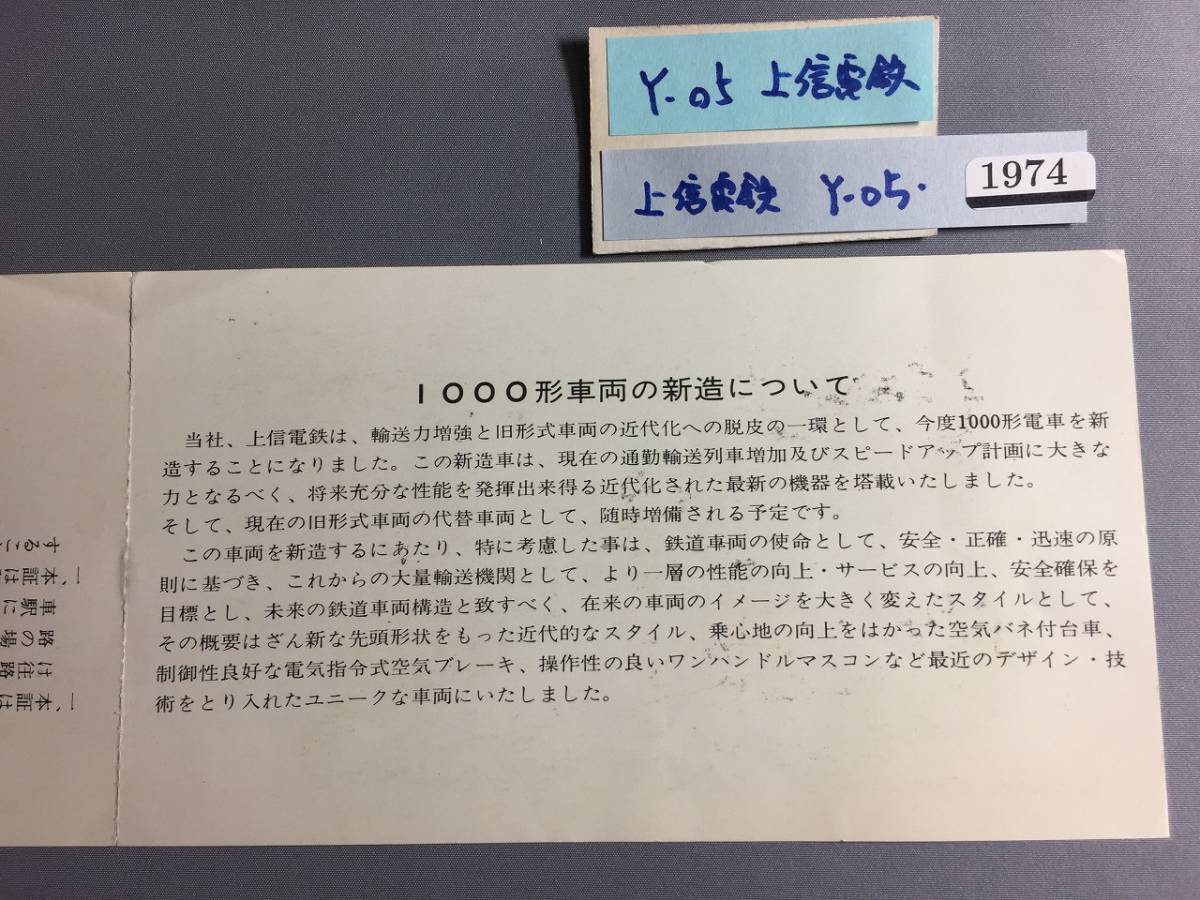 Y-05 上信電鉄
上信電鉄 Y-05.
1974
1000形車両の新造について
当社、上信電鉄は、輸送力増強と旧形式車両の近代化への脱皮の一環として、今度1000形電車を新
造することになりました。この新造車は、現在の通勤輸送列車増加及びスピードアップ計画に大きな
力となるべく、将来充分な性能を発揮出来得る近代化された最新の機器を塔載いたしました。
そして、現在の旧形式車両の代替車両として、随時増備される予定です。
この車両を新造するにあたり、特に考慮した事は、鉄道車両の使命として、安全・正確・迅速の原
則に基づき、これからの大量輸送機関として、より一層の性能の向上・サービスの向上、安全確保を
目標とし、未来の鉄道車両構造と致すべく、在来の車両のイメージを大きく変えたスタイルとして、
その概要はざん新な先頭形状をもった近代的なスタイル、乗心地の向上をはかった空気バネ付台車、
制御性良好な電気指令式空気ブレーキ、操作性の良いワンハンドルマスコンなど最近のデザイン・技
術をとり入れたユニークな車両にいたしました。
一、本証は
は往路
路の場
車駅に
一、本証は
するこ